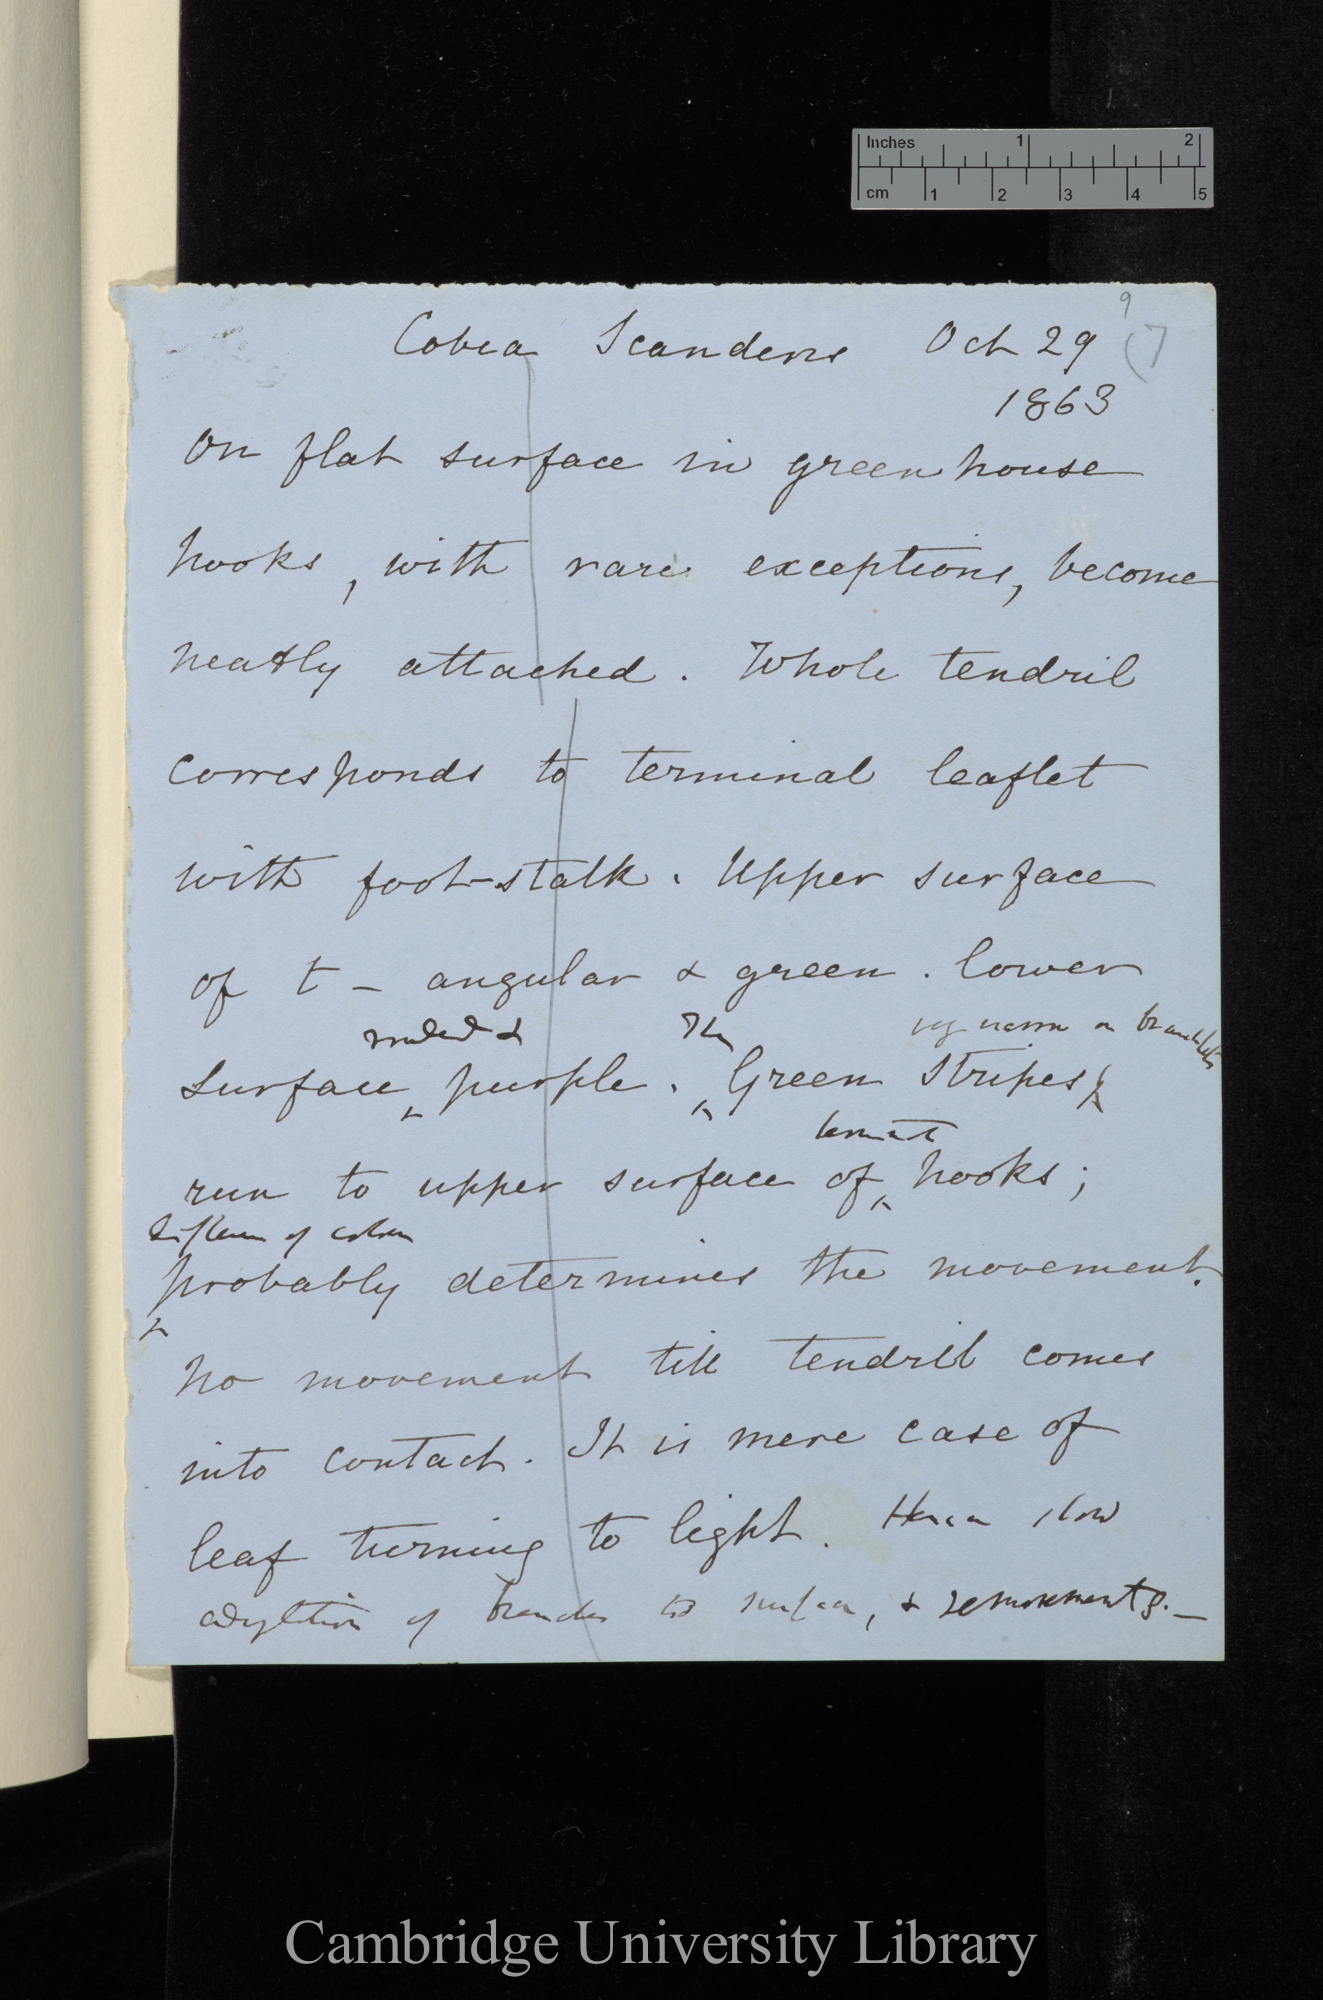 Inches 1 2
cm 1 2 3 4 5
9
(7
Cobea Scandens Oct 29
1863
On flat surface in green house
hooks, with rare exceptions, become
neatly attached. Whole tendril
corresponds to terminal leaflet
with foot-stalk. Upper surface
of t — angular & green. lower
rounded & The very narrow on branchlets
surface purple. Green stripes
run to upper surface of hooks;
of colour
probably determines the movement.
No movement till tendril comes
into contact. It is mere case of
leaf turning to light. Hence slow
of branches to surface, & movements. —
Cambridge University Library